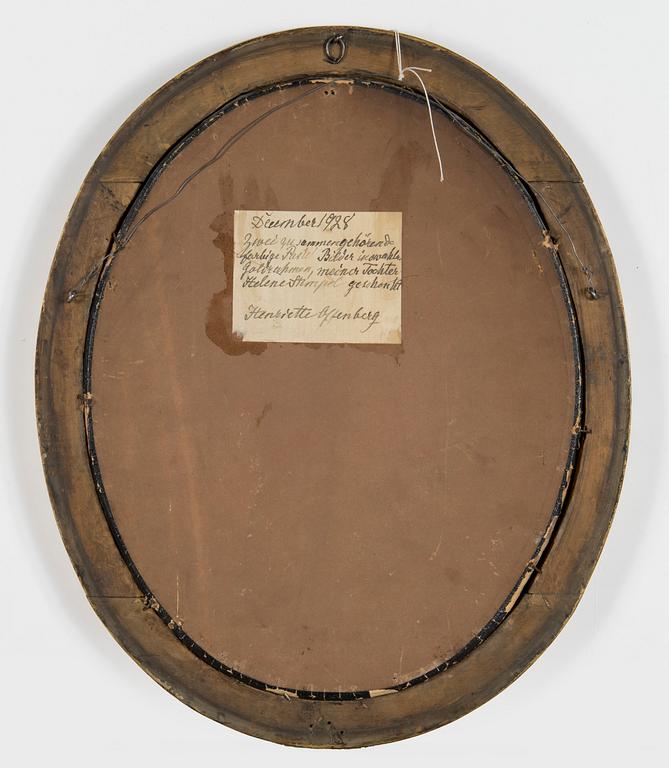 December 1928
Zwei zusammengehörende
farbige Bilder in ovalen
Goldrahmen, meiner Tochter
Helene Stempel geschenkt
Henriette Offenberg